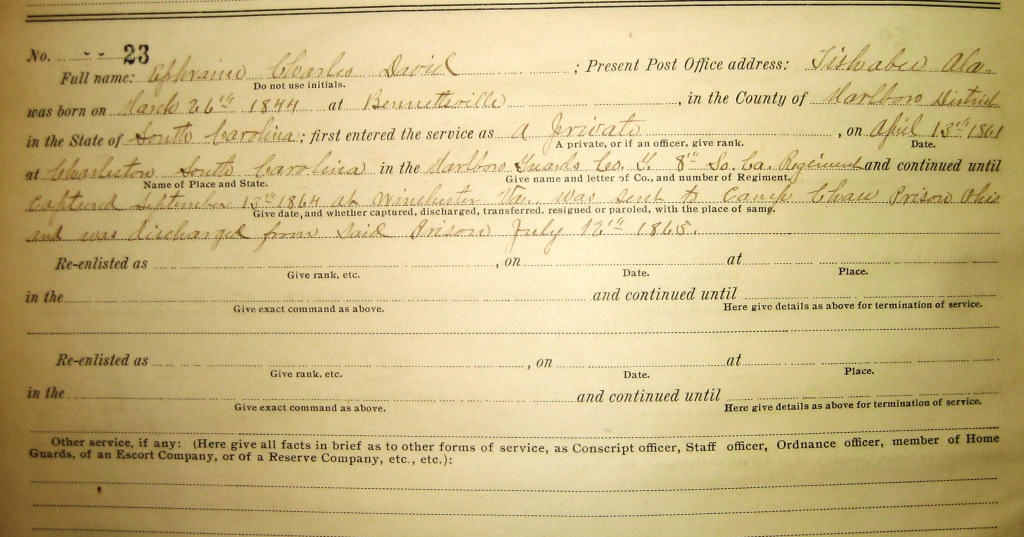 No. 23
Full name: Ephraim Charles David ; Present Post Office address: Tishabee Ala.
Do not use initials.
was born on March 26th 1844 at Bennettsville , in the County of Marlboro District
in the State of South Carolina; first entered the service as A Private , on April 13th 1861
A private, or if an officer, give rank. Date.
at Charleston South Carolina in the Marlboro Guards Co. 8th So. Ca. Regiment and continued until
Name of Place and State. Give name and letter of Co., and number of Regiment.
Captured September 13th 1864 at Winchester Va. was sent to Camp Chase Prison Ohio
Give date, and whether captured, discharged, transferred. resigned or paroled, with the place of samg.
and was discharged from said Prison July 12th 1865.
Re-enlisted as , on at
Give rank, etc. Date. Place.
in the and continued until
Give exact command as above. Here give details as above for termination of service.
Re-enlisted as , on at
Give rank, etc. Date. Place.
in the and continued until
Give exact command as above. Here give details as above for termination of service.
Other service, if any: (Here give all facts in brief as to other forms of service, as Conscript officer, Staff officer, Ordnance officer, member of Home
Guards, of an Escort Company, or of a Reserve Company, etc., etc.):